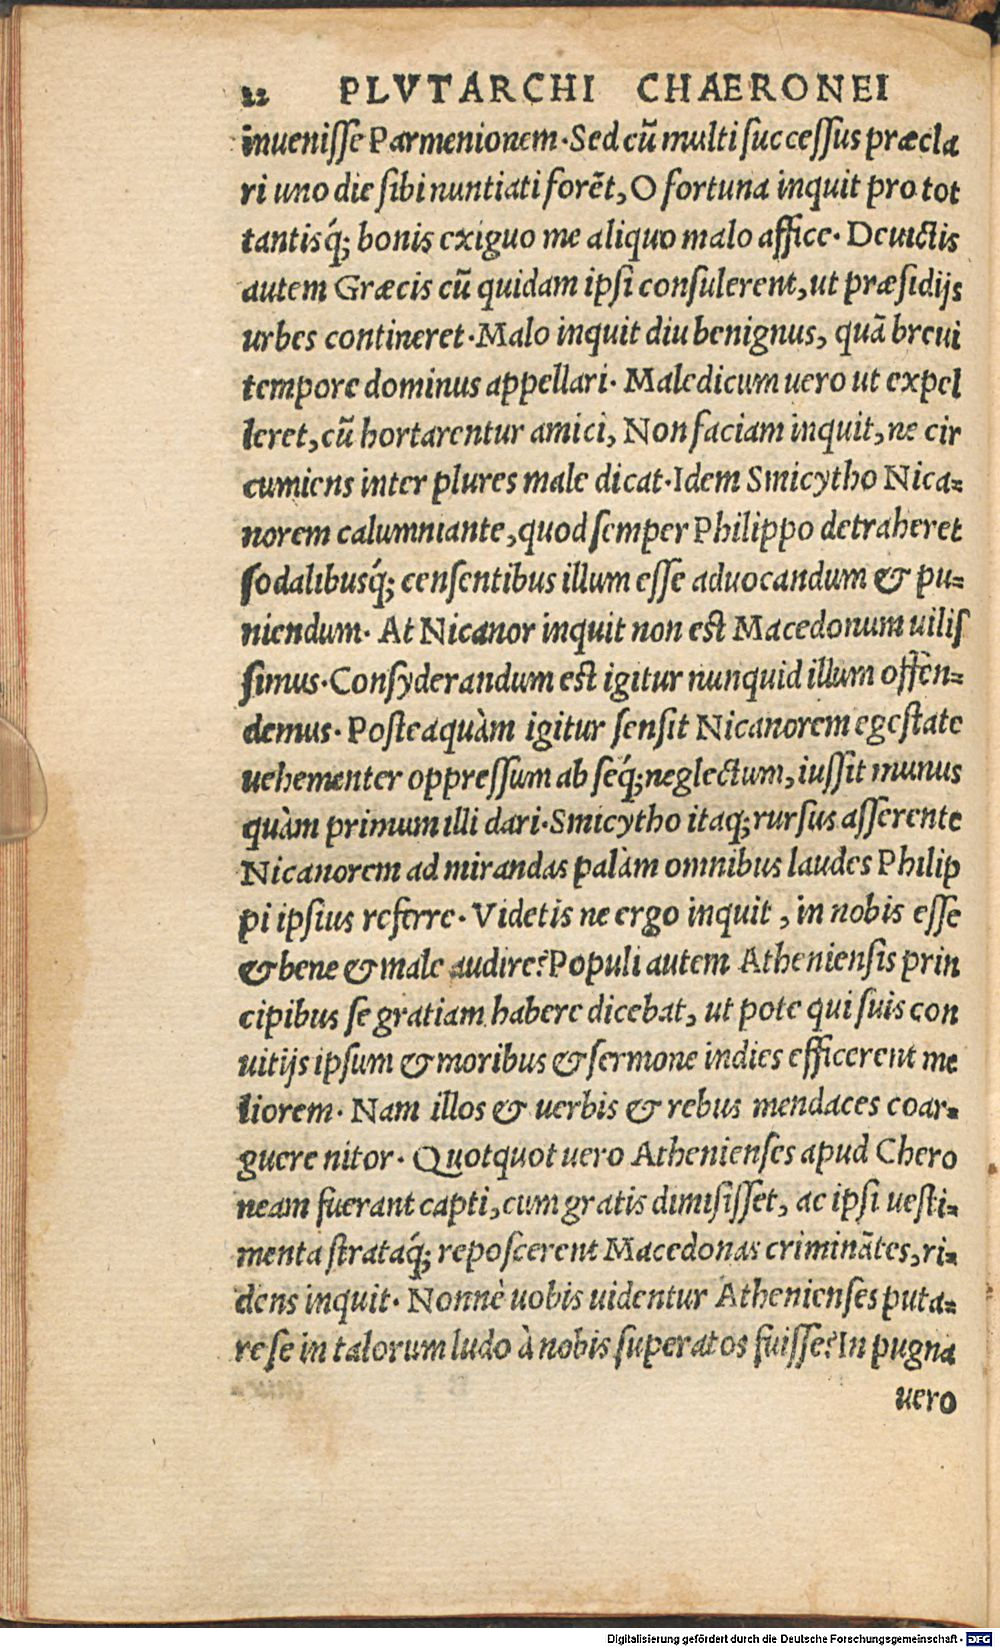 22 PLVTARCHI CHAERONEI
inuenisse Parmenionem. Sed cū multi successus præcla
ri uno die sibi nuntiati forēt, O fortuna inquit pro tot
tantisq́; bonis exiguo me aliquo malo affice. Deuictis
autem Græcis cū quidam ipsi consulerent, ut præsidijs
urbes contineret. Malo inquit diu benignus, quā breui
tempore dominus appellari. Maledicum uero ut expel
leret, cū hortarentur amici, Non faciam inquit, ne cir
cumiens inter plures male dicat. Idem Smicytho Nica=
norem calumniante, quod semper Philippo detraheret
sodalibusq́; censentibus illum esse aduocandum & pu=
niendum. At Nicanor inquit non est Macedonum uilis
simus. Consyderandum est igitur nunquid illum offen=
demus. Posteaquàm igitur sensit Nicanorem egestate
uehementer oppressum ab seq́; neglectum, iussit munus
quàm primum illi dari. Smicytho itaq; rursus asserente
Nicanorem admirandas palàm omnibus laudes Philip
pi ipsius referre. Videtis ne ergo inquit, in nobis esse
& bene & male audire? Populi autem Atheniensis prin
cipibus se gratiam habere dicebat, ut pote qui suis con
uitijs ipsum & moribus & sermone indies efficerent me
liorem. Nam illos & uerbis & rebus mendaces coar=
guere nitor. Quotquot uero Athenienses apud Chero
neam fuerant capti, cum gratis dimisisset, ac ipsi uesti=
menta strataq́; reposcerent Macedonas criminātes, ri=
dens inquit. Nonnè uobis uidentur Athenienses puta=
re se in talorum ludo à nobis superatos fuisse? In pugna
uero
Digitalisierung gefördert durch die Deutsche Forschungsgemeinschaft - DFG